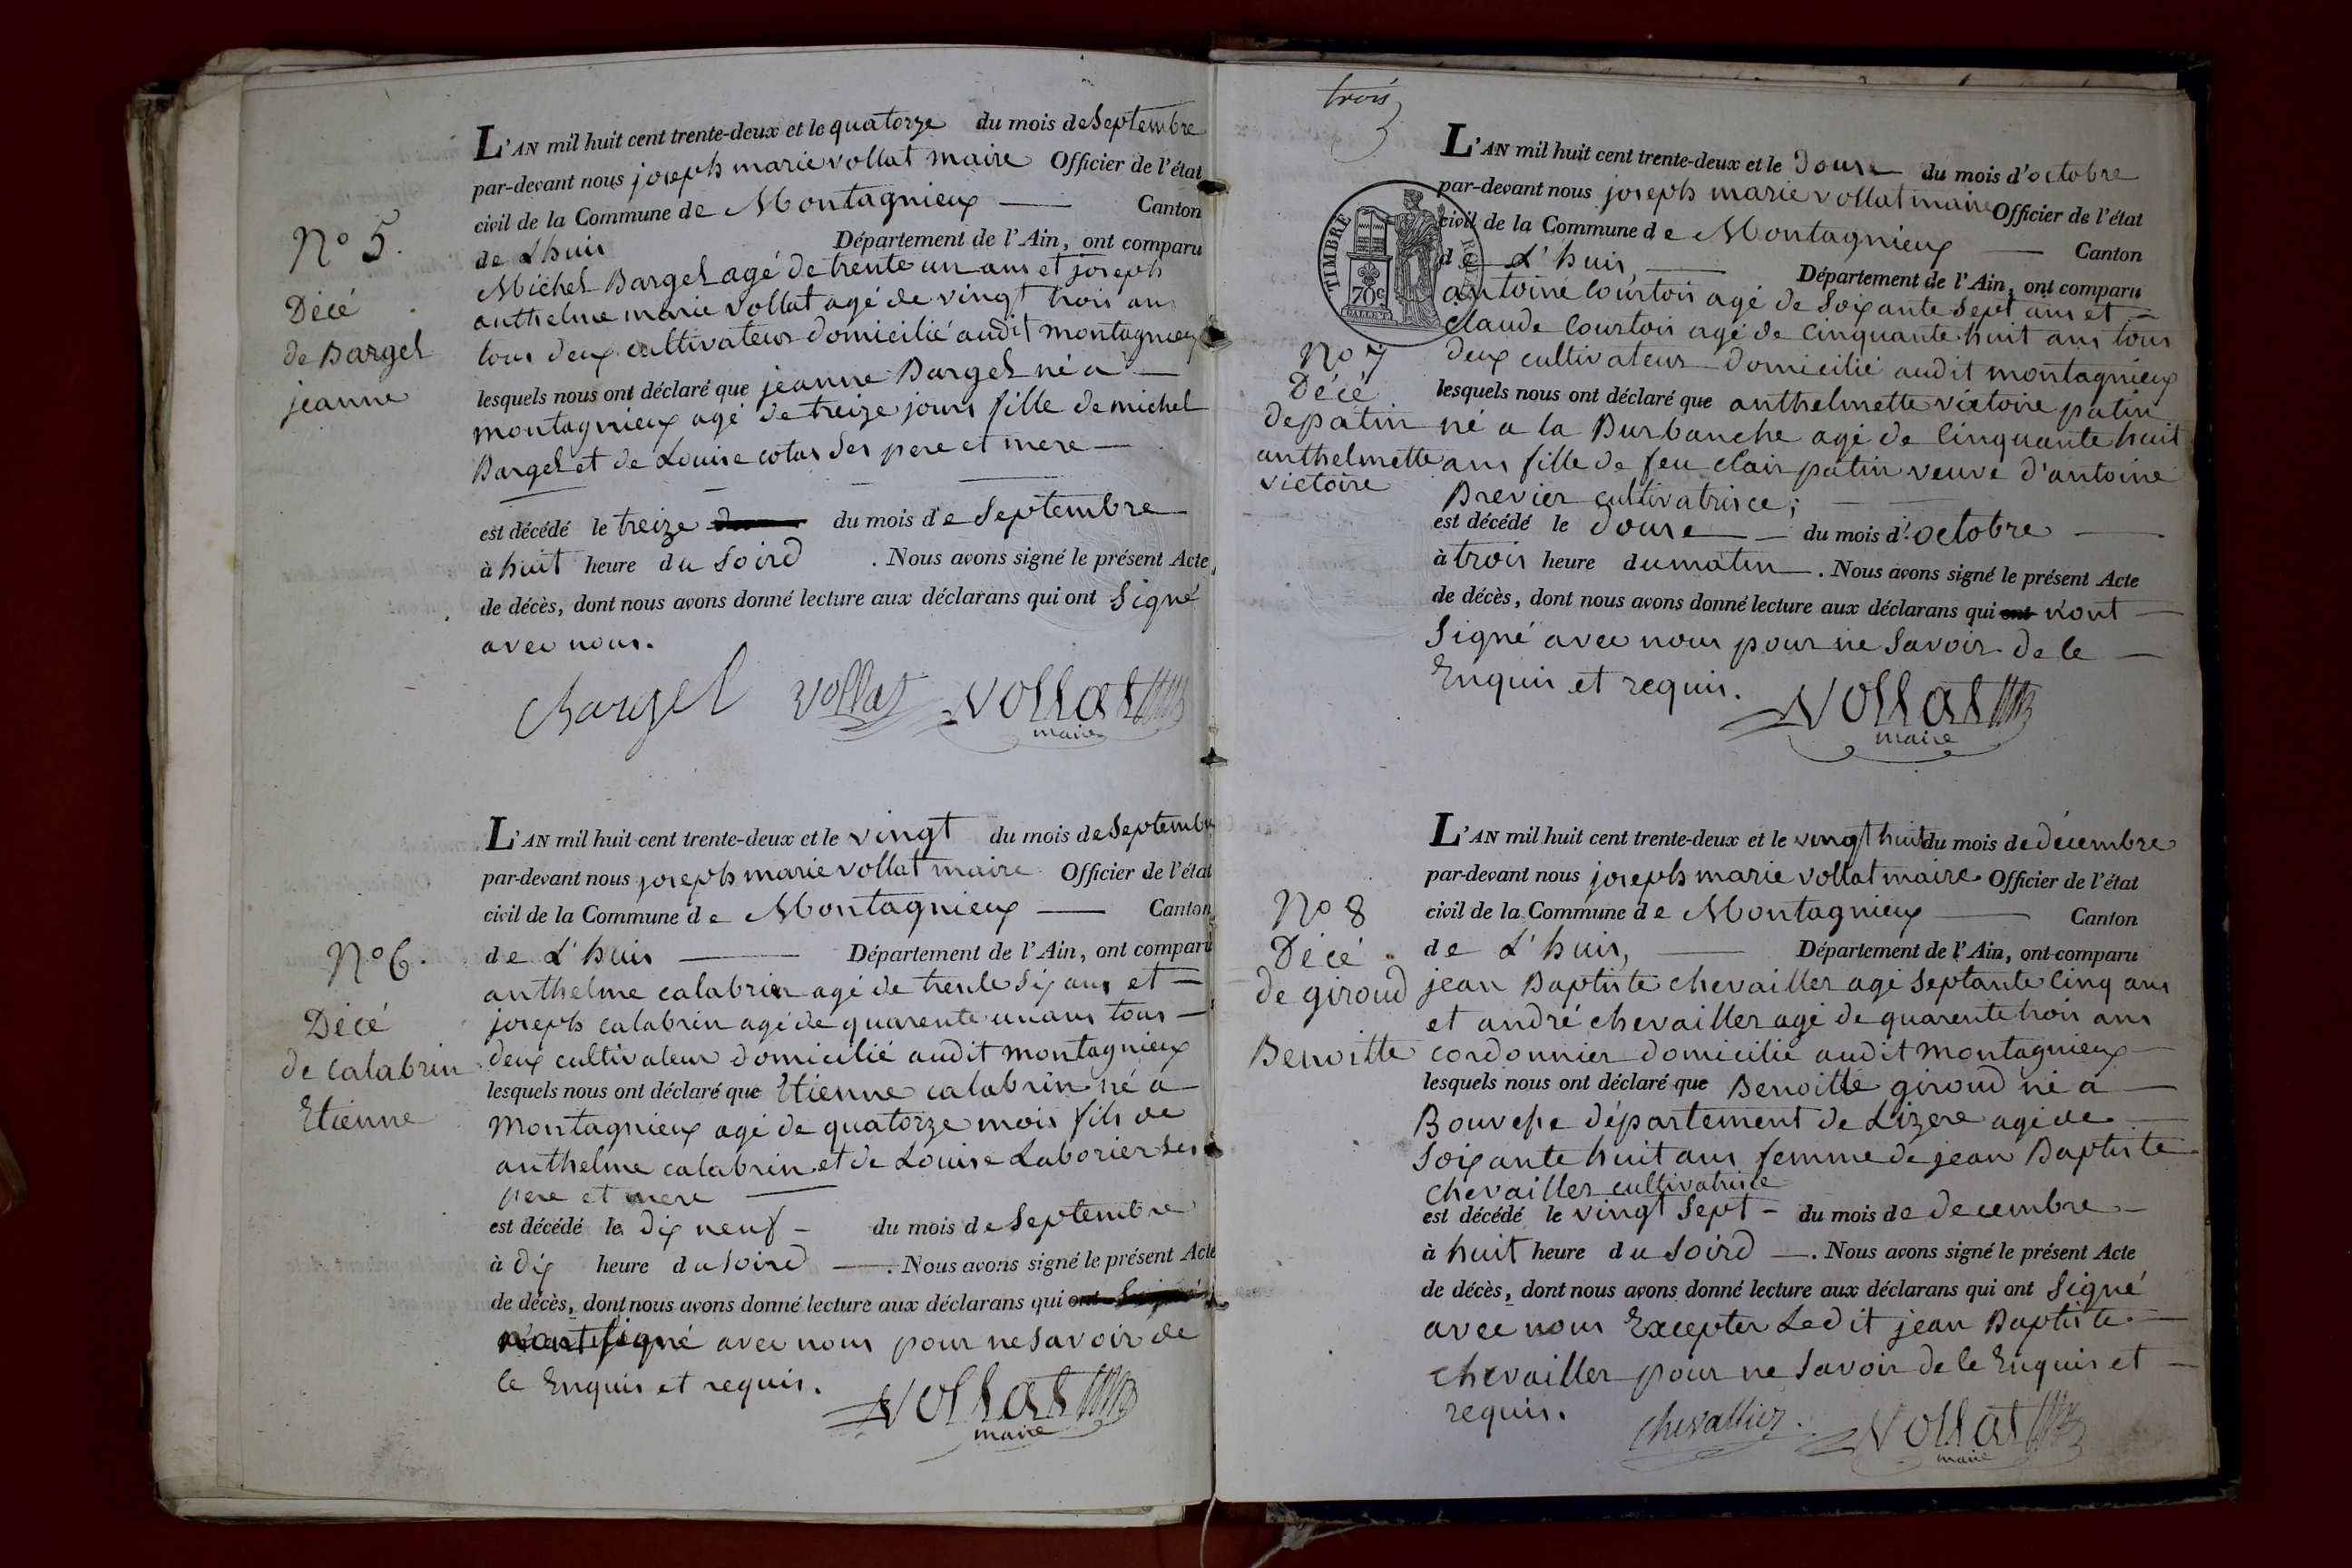 L'AN mil huit cent trente-deux et le quatorze du mois de Septembre
par-devant nous joseph marie vollat maire Officier de l'état
civil de la Commune de Montagnieux — Canton
de Lhuis Département de l'Ain, ont comparu
N° 5.
Décé
de Bargel
jeanne
Michel Bargel agé de trente un ans et joseph
anthelme marie vollat agé de vingt trois ans
tous deux cultivateurs domicilié audit montagnieux
lesquels nous ont déclaré que jeanne Bargel né a —
montagnieux agé de treize jours fille de michel
Bargel et de Louise cotas ses pere et mere —
est décédé le treize du mois de Septembre
à huit heure du Soird . Nous avons signé le présent Acte,
de décès, dont nous avons donné lecture aux déclarans qui ont Signé
avec nous.
Bargel vollat vollat
maire
L'AN mil huit cent trente-deux et le vingt du mois de Septembre
par-devant nous joseph marie vollat maire Officier de l'état
civil de la Commune de Montagnieux — Canton
de L'huis — Département de l'Ain, ont comparu
N° 6.
Décé
de Calabrin
Etienne
anthelme calabrin agé de trente Six ans et —
joseph calabrin agé de quarente un ans tous —
deux cultivateur domicilié audit montagnieux
lesquels nous ont déclaré que Etienne calabrin né a
montagnieux agé de quatorze mois fils de
anthelme calabrin et de Louise Laborier ses
pere et mere —
est décédé le dix neuf — du mois de Septembre
à dix heure du Soird —. Nous avons signé le présent Acte
de décès, dont nous avons donné lecture aux déclarans qui ont Signé
n'ont signé avec nous pour ne savoir de
le Enquis et requis.
vollat
maire
trois
3
L'AN mil huit cent trente-deux et le Douse du mois d'octobre
par-devant nous joseph marie vollat maire Officier de l'état
civil de la Commune de Montagnieux — Canton
de L'huis, — Département de l'Ain, ont comparu
TIMBRE
70c
N° 7
Décé
de patin
anthelmette
victoire
antoine Courtois agé de Soixante Sept ans et —
Claude Courtois agé de Cinquante huit ans tous
deux cultivateurs domicilié audit montagnieux
lesquels nous ont déclaré que anthelmette victoire patin
né a la Burbanche agé de Cinquante huit
ans fille de feu clair patin veuve d'antoine
Brevier cultivatrisce; —
est décédé le Douse — du mois d'octobre —
à trois heure du matin —. Nous avons signé le présent Acte
de décès, dont nous avons donné lecture aux déclarans qui ont n'ont —
Signé avec nous pour ne Savoir de le —
Enquis et requis.
vollat
maire
L'AN mil huit cent trente-deux et le vingt huit du mois de décembre
par-devant nous joseph marie vollat maire Officier de l'état
civil de la Commune de Montagnieux — Canton
de L'huis, — Département de l'Ain, ont comparu
N° 8
Décé
de giroud
Benoitte
jean Baptiste chevailler agé Septante Cinq ans
et andré chevailler agé de quarente trois ans
cordonnier domicilié audit Montagnieux —
lesquels nous ont déclaré que Benoitte giroud né a —
Bouvesse département de Lizere agé de —
Soixante huit ans femme de jean Baptiste
chevailler cultivatrice
est décédé le vingt Sept — du mois de decembre —
à huit heure du Soird —. Nous avons signé le présent Acte
de décès, dont nous avons donné lecture aux déclarans qui ont Signé
avec nous Excepter Ledit jean Baptiste —
chevailler pour ne Savoir de le Enquis et —
requis.
chevallier. vollat
maire